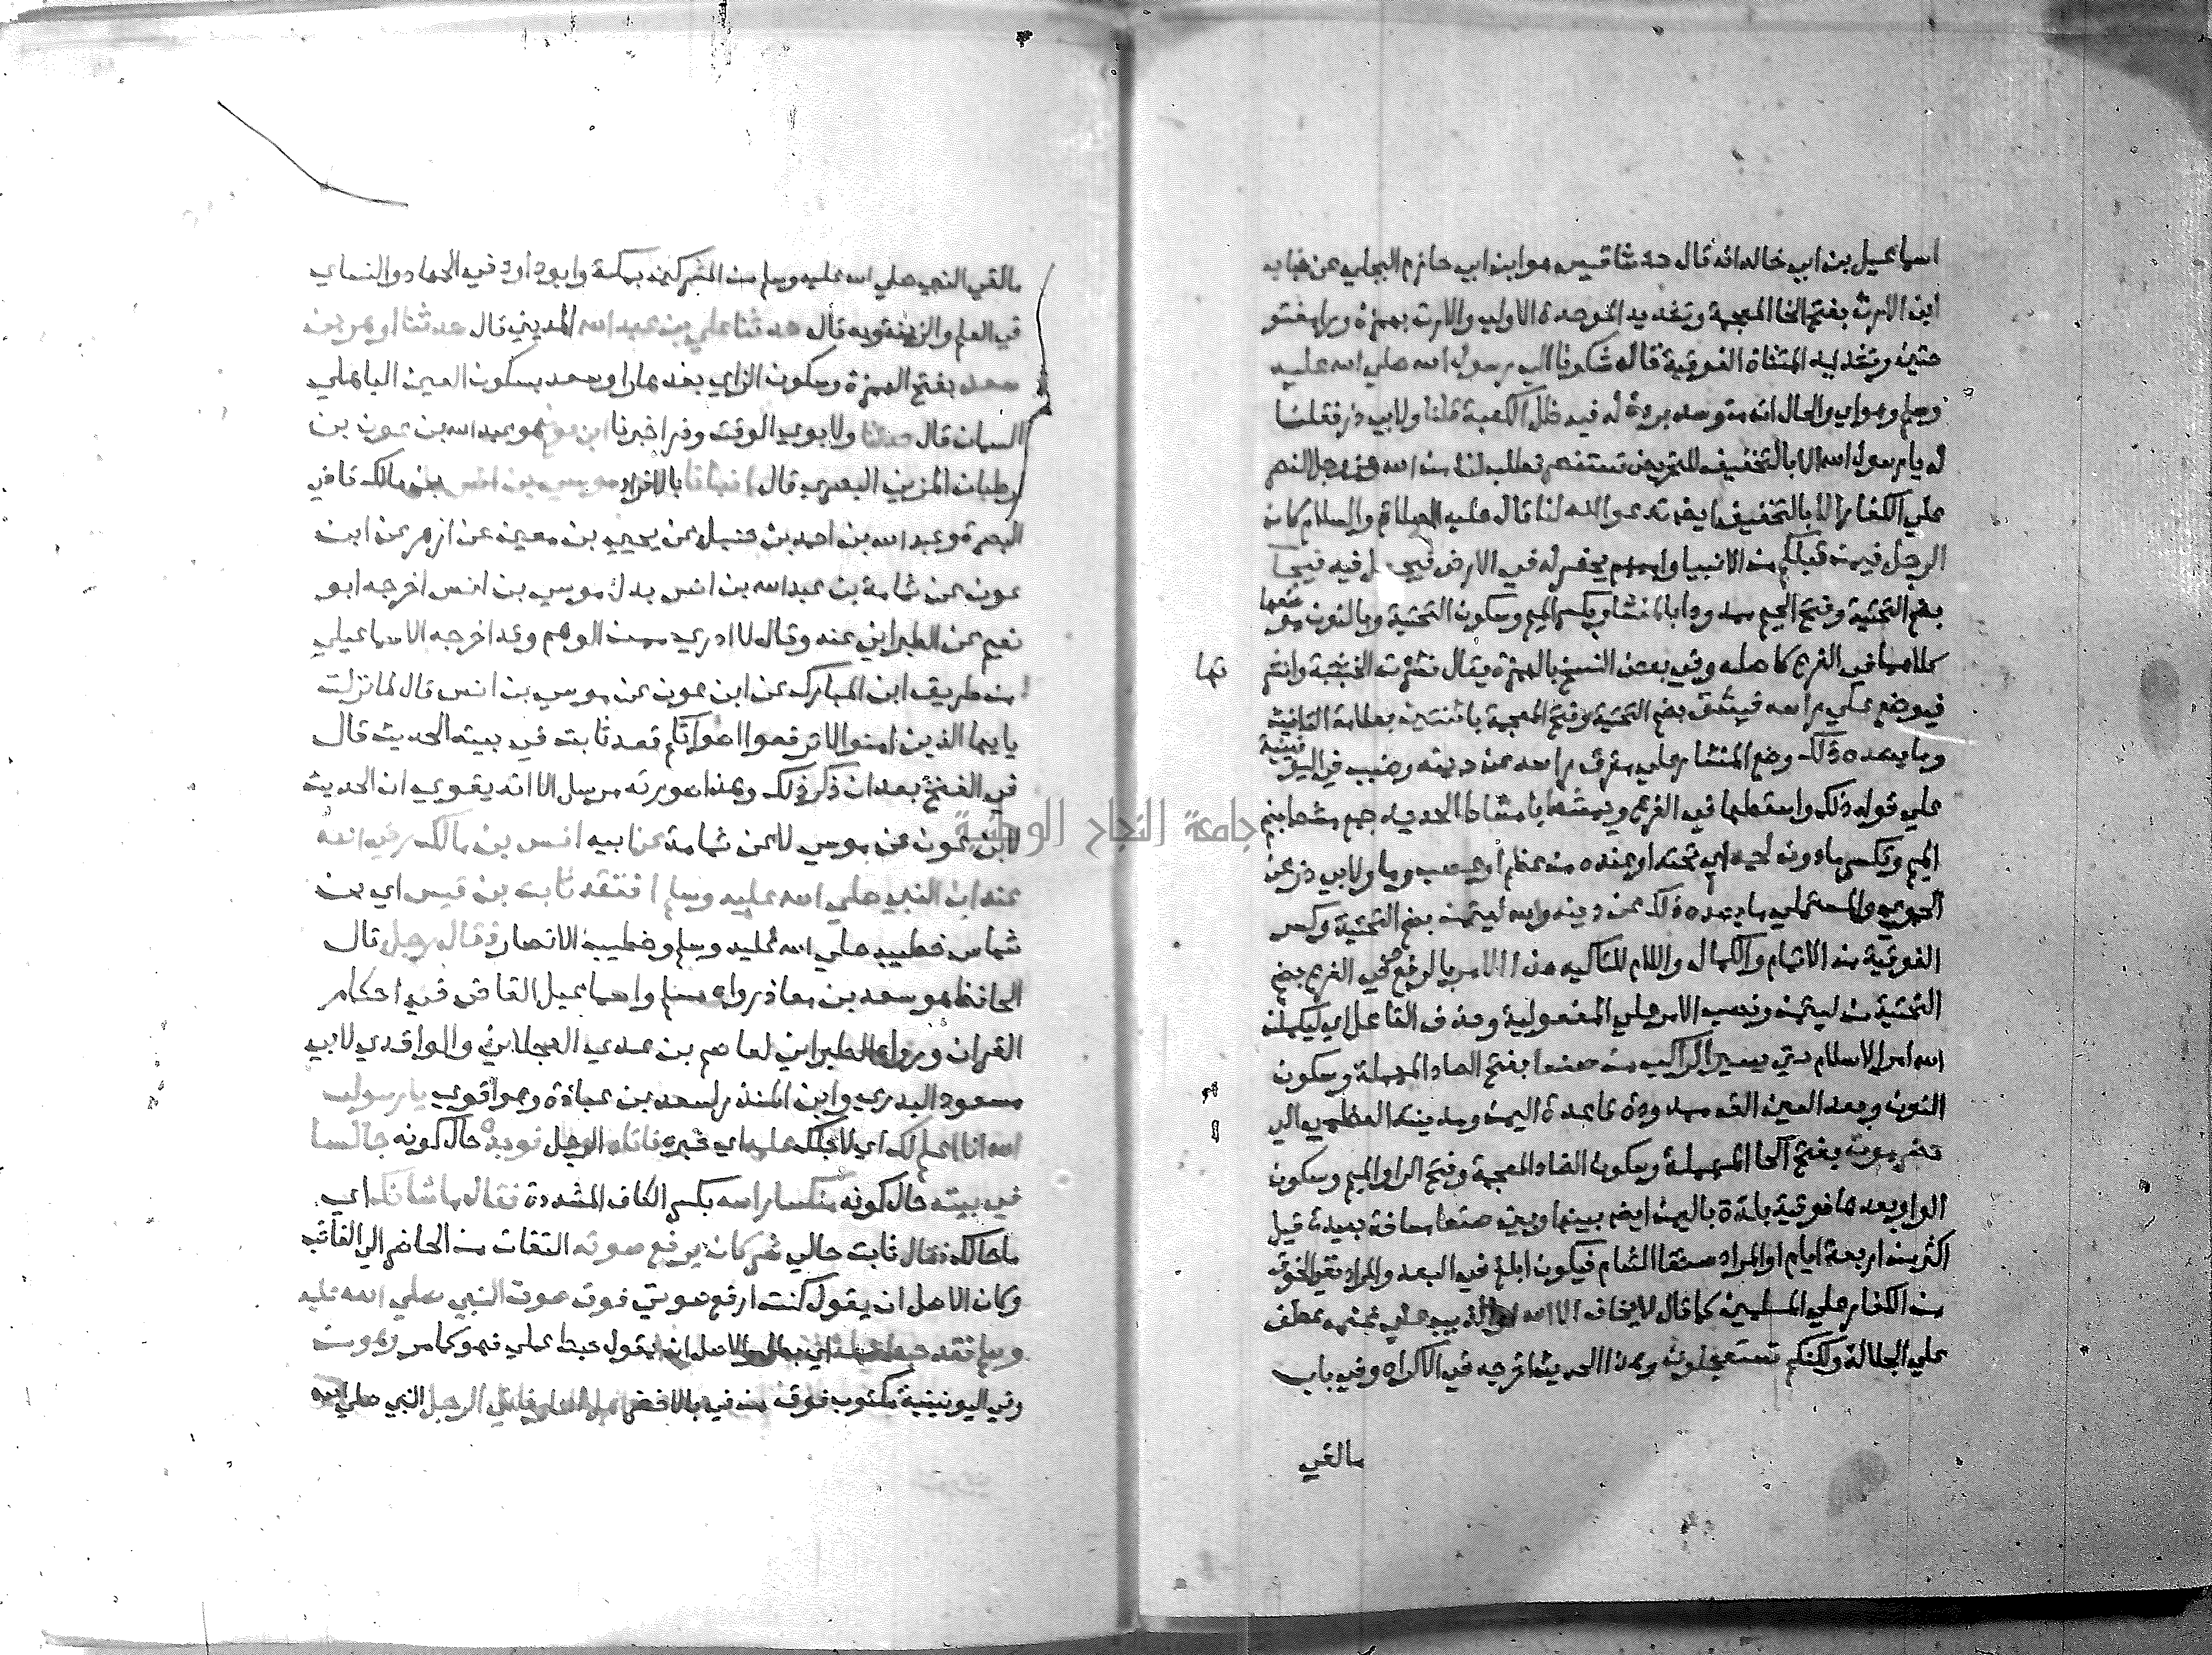 اسماعيل بن ابي خالد انه قال حدثنا قيس هو ابن ابي حازم البجلي عن خباب
ابن الارت بفتح الخا المعجمة وتشديد الموحدة الاولي والارت بهمزة ورا مفتو
حتين وتشديد المثناة الفوقية قال شكونا الي رسول الله صلي الله عليه
وسلم وهو اي والحال انه متوسد بردة له في ظل الكعبة قلنا ولابي ذر فقلنا
له يا رسول الله الا بالتخفيف للتحريض تستنصر تطلب لنا من الله عز وجل النصر
علي الكفار الا بالتخفيف ايضا تدعو الله لنا قال عليه الصلاة والسلام كان
الرجل فيمن قبلكم من الانبيا واممهم يحفر له في الارض فيجعل فيه فيجا
بضم التحتية وفتح الجيم ممدودا بالمنشار بكسر الميم وسكون التحتية وبالنون موضعها
كلاهما في الفرع كاصله وفي بعض النسخ بالهمزة يقال نشرت الخشبة وانشر
تها
فيوضع علي راسه فيشق بضم التحتية وفتح المعجمة باثنتين بعلامة التانيث
وما يصده ذلك وضع المنشار علي مفرق راسه عن دينه وضبب في اليونينية
علي قوله ذلك واسقطها في الفرع ويمشط بامشاط الحديد جمع مشط بضم
الميم وتكسر ما دون لحمه اي تحته او عنده من عظم او عصب وما ولابي ذر عن
الحموي والمستملي ما يصده ذلك عن دينه والله ليتمن بضم التحتية وكسر
الفوقية من الاتمام والكمال واللام للتاكيد هذا الامر بالرفع في الفرع بضم
التحتية من ليتمن ونصب الامر علي المفعولية وحذف الفاعل اي ليكملن
الله امر الاسلام حتي يسير الراكب من صنعا بفتح الصاد المهملة وسكون
النون وبعد العين الف ممدودة قاعدة اليمن ومدينته العظمي الي
حضرموت بفتح الحا المهملة وسكون الضاد المعجمة وفتح الرا والميم وسكون
الواو بعدها فوقية بلدة باليمن ايضا بينها وبين صنعا مسافة بعيدة قيل
اكثر من اربعة ايام او المراد صنعا الشام فيكون ابلغ في البعد والمراد نفي الخوف
من الكفار علي المسلمين كما قال لا يخاف الا الله او الذيب علي غنمه عطف
علي الجلالة ولكنكم تستعجلون وهذا الحديث اخرجه في الاكراه وفي باب
مالقي
مالقي النبي صلي الله عليه وسلم من المشركين بمكة وابو داود في الجهاد والنساي
في العلم والزينة وبه قال حدثنا علي بن عبد الله المديني قال حدثنا ازهر بن
سعد بفتح الهمزة وسكون الزاي بعدها را وسعد بسكون العين الباهلي
السمان قال حدثنا ولابوي الوقت وذر اخبرنا ابن عون هو عبد الله بن عون بن
ارطبان المزني البصري قال انبانا بالافراد موسي بن انس بن مالك قاضي
البصرة وعبد الله بن احمد بن حنبل عن يحيي بن معين عن ازهر عن ابن
عون عن ثمامة بن عبد الله بن انس بدل موسي بن انس اخرجه ابو
نعيم عن الطبراني عنه وقال لا ادري ممن الوهم وقد اخرجه الاسماعيلي
من طريق ابن المبارك عن ابن عون عن موسي بن انس قال لما نزلت
يايها الذين امنوا لا ترفعوا اصواتكم قعد ثابت في بيته الحديث قال
في الفتح بعد ان ذكر ذلك وهذا صورته مرسل الا انه يقوي ان الحديث
لابن عون عن موسي لا عن ثمامة عن ابيه انس بن مالك رضي الله
عنه ان النبي صلي الله عليه وسلم افتقد ثابت بن قيس اي بن
شماس خطيبه صلي الله عليه وسلم وخطيب الانصار فقال رجل قال
الحافظ هو سعد بن معاذ رواه مسلم واسماعيل القاضي في احكام
القران ورواه الطبراني لعاصم بن عدي العجلاني والواقدي لابي
مسعود البدري وابن المنذر لسعد بن عبادة وهو اقوي يا رسول
الله انا اعلم لك اي لاجلك علمه اي خبره فاتاه الرجل فوجده حال كونه جالسا
في بيته حال كونه منكسا راسه بكسر الكاف المشددة فقال ما شانك اي
ما حالك فقال ثابت حالي شر كان يرفع صوته التفات من الحاضر الي الغائب
وكان الاصل ان يقول كنت ارفع صوتي فوق صوت النبي صلي الله عليه
وسلم فقد حبط عمله اي بطل والاصل ان يقول حبط عملي فهو كما مر وهو من
وفي اليونينية مكتوب فوق من في بالاخضر اهل النار فاتي الرجل النبي صلي الله
جامعة النجاح الوطنية